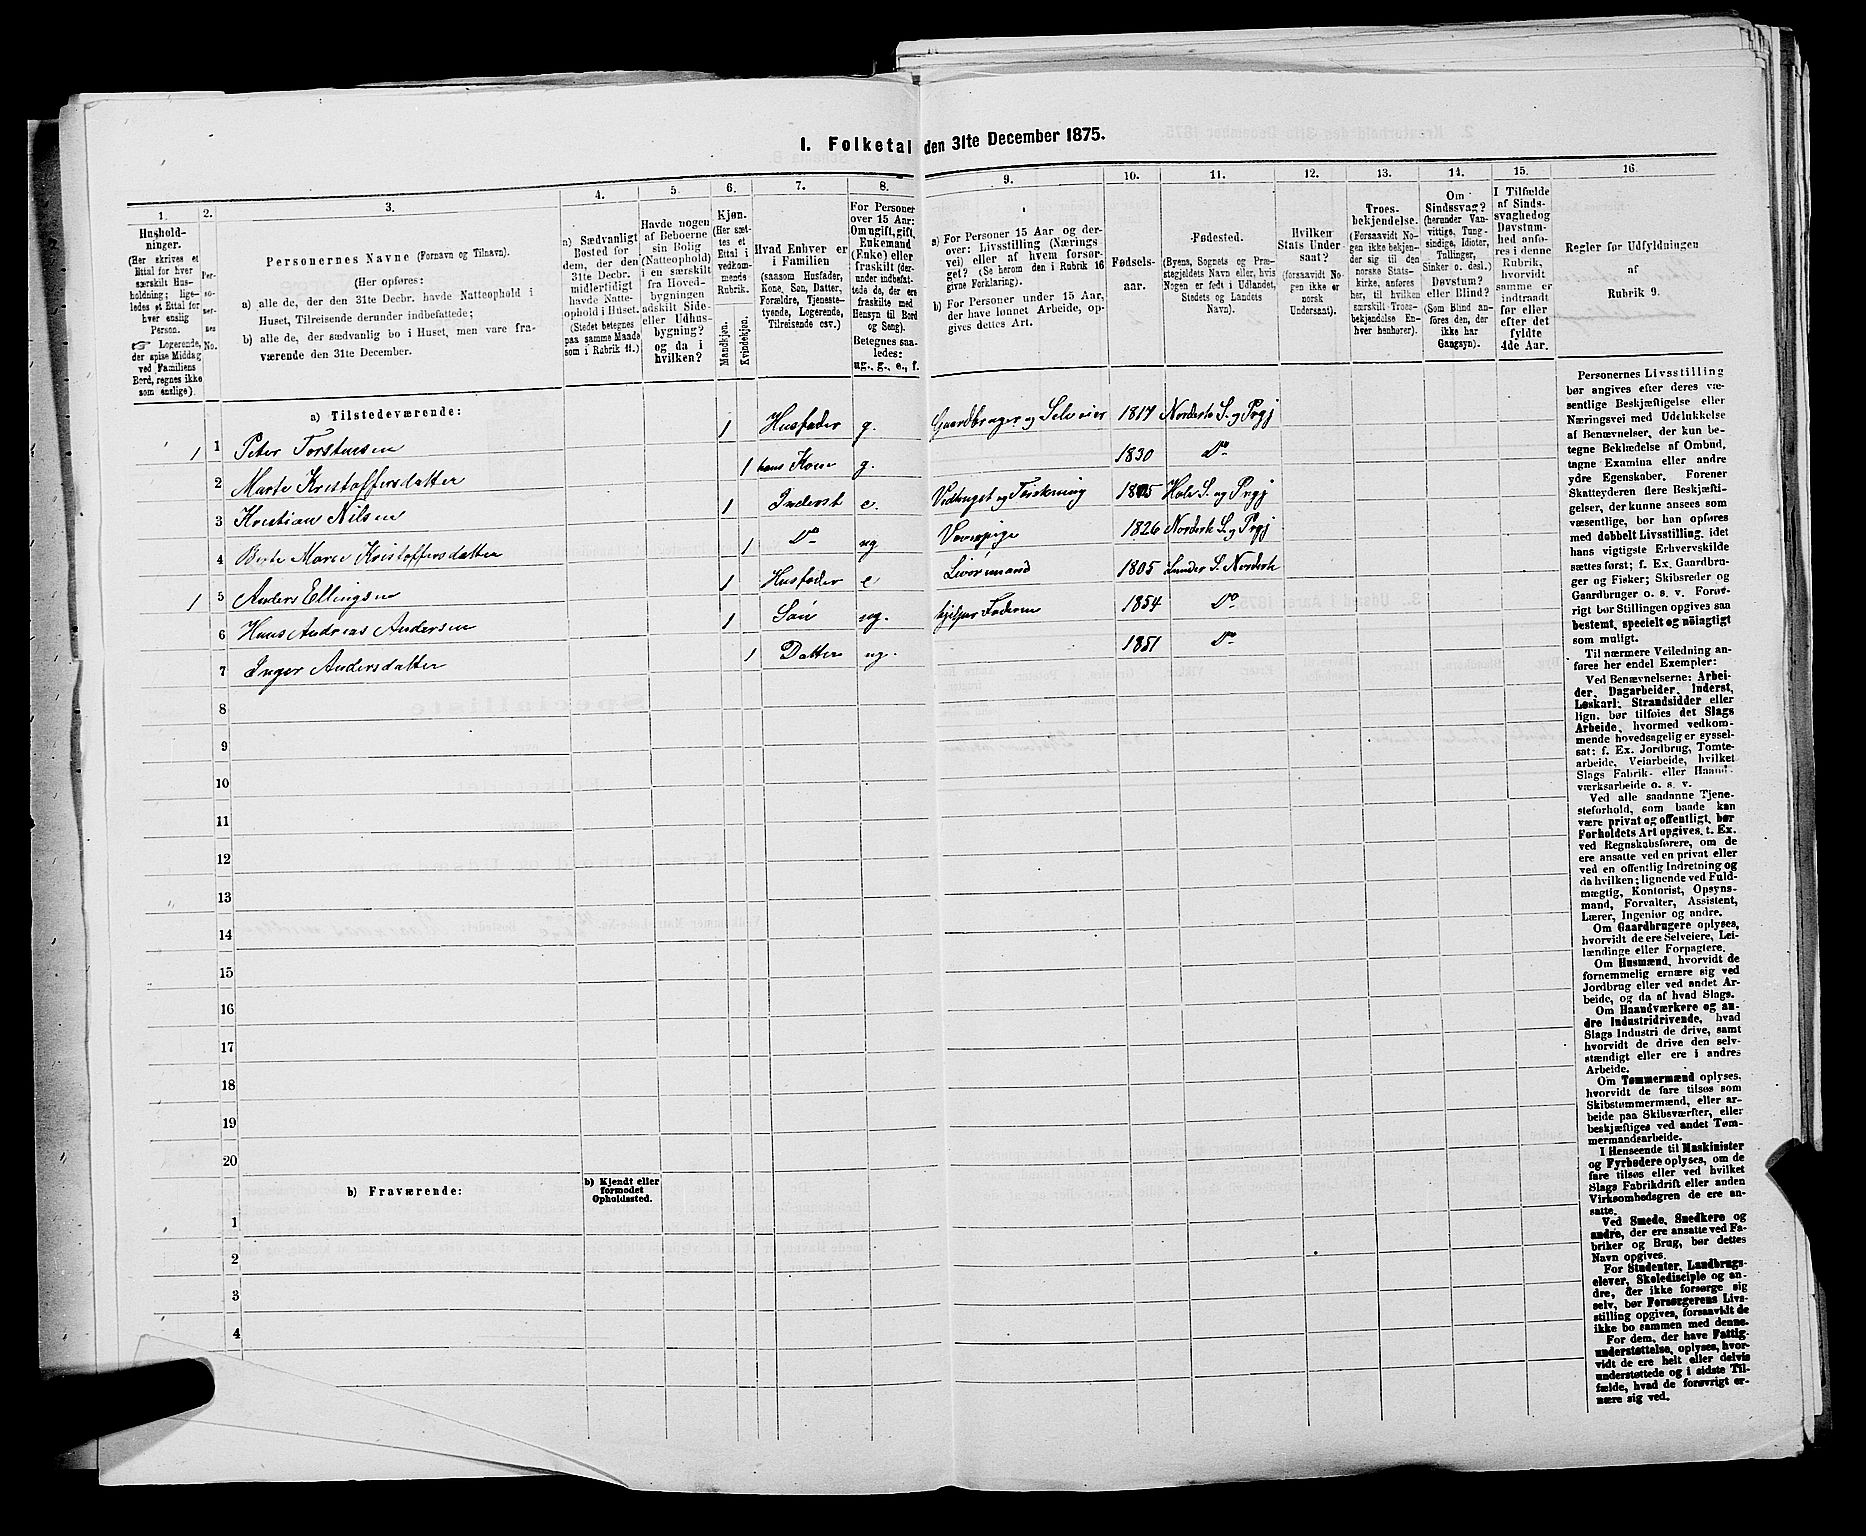 I. Folketal den 31te December 1875.
1.
2.
3.
4.
5.
6.
7.
8.
9.
10.
11.
12.
13.
14.
15.
16.
Husholdninger.
(Her skrives et
Ettal for hver
særskilt Husholdning;
ligeledes et Ettal for
hver enslig
Person.
☞ Logerende,
der spise Middag
ved Familiens
Bord, regnes ikke
som enslige).
Personernes No.
Personernes Navne (Fornavn og Tilnavn).
(Her opføres:
a) alle de, der den 31te Decbr. havde Natteophold i
Huset, Tilreisende derunder indbefattede;
b) alle de, der sædvanlig bo i Huset, men vare fraværende
den 31te December.
a) Sædvanligt
Bosted for
dem, der den
31te Decbr.
midlertidigt
havde Natteophold
i Huset.
(Stedet betegnes
paa samme Maade
som i Rubrik 11.)
Havde nogen
af Beboerne
sin Bolig
(Natteophold)
i en særskilt
fra Hovedbygningen
adskilt Side-
eller Udhusbygning?
og da i
hvilken?
Kjøn.
(Her sættes
et
Ettal i
vedkommende
Rubrik.
Mandkjøn.
Kvindekjøn.
Hvad Enhver er
i Familien
(saasom Husfader,
Kone, Søn, Datter,
Forældre, Tjenestetyende,
Logerende,
Tilreisende osv.)
For Personer
over 15 Aar:
Om ugift, gift,
Enkemand
(Enke) eller
fraskilt (derunder
indbefattede,
der ere
fraskilte med
Hensyn til Bord
og Seng).
Betegnes saaledes:
ug., g., e., f.
a) For Personer 15 Aar og derover:
Livsstilling (Næringsvei)
eller af hvem forsørget?
(Se herom den i Rubrik 16
givne Forklaring).
b) For Personer under 15 Aar,
der have lønnet Arbeide, opgives
dettes Art.
Fødselsaar.
Fødested.
(Byens, Sognets og Præstegjeldets
Navn eller, hvis
Nogen er født i Udlandet,
Stedets og Landets
Navn).
Hvilken
Stats Undersaat?
(forsaavidt Nogen
ikke er
norsk
Undersaat).
Troesbekjendelse.
(Forsaavidt Nogen
ikke bekjender
sig til den
norske Statskirke,
anføres
her, til hvilken
særskilt Troesbekjendelse
Enhver
henhører).
Om
Sindssvag?
(herunder Vanvittige,
Tungsindige,
Idioter,
Tullinger,
Sinker o. desl.)
Døvstum?
eller Blind?
(Som Blind anføres
den, der
ikke har
Gangsyn).
I Tilfælde
af Sindssvaghed
og
Døvstumhed
anføres
i denne
Rubrik,
hvorvidt
samme er
indtraadt
før eller
efter det
fyldte
4de Aar.
Regler før Udfyldningen
af
Rubrik 9.
a) Tilstedeværende:
1 1 Peter Torstensen 1 Husfader g. Gaardbruger og Selveier 1817 Norderh. S. og Prgj
2 Marte Kristoffersdatter 1 hans Kone g. 1830 Do
3 Kristian Nilsen 1 Inderst e. Vedhugst og Tærskning 1805 Hole S. og Prgj
4 Berte Marie Kristoffersdatter 1 Do ug Væverpige 1826 Norderh. S. og Prgj
1 5 Anders Ellingsen 1 Husfader e Livøremand 1805 Lunder S. Norderh
6 Hans Andreas Andersen 1 Søn ug. hjelper Faderen 1854 Do
7 Inger Andersdatter 1 Datter ug. 1851 Do
8
9
10
11
12
13
14
15
16
17
18
19
20
b) Fraværende:
b) Kjendt eller
formodet
Opholdssted.
1
2
3
4
Personernes Livsstilling
bør angives efter deres væsentlige
Beskjæftigelse eller
Næringsvei med Udelukkelse
af Benævnelser, der kun betegne
Beklædelse af Ombud,
tagne Examina eller andre
ydre Egenskaber. Forener
Skatteyderen flere Beskjæftigelser,
der kunne ansees som
væsentlige, bør han opføres
med dobbelt Livsstilling, idet
hans vigtigste Erhvervskilde
sættes først; f. Ex. Gaardbruger
og Fisker; Skibsreder og
Gaardbruger o. s. v. Forøvrigt
bør Stillingen opgives saa
bestemt, specielt og nøiagtigt
som muligt.
Til nærmere Veiledning anføres
her endel Exempler:
Ved Benævnelserne: Arbeider,
Dagarbeider, Inderst,
Løskarl, Strandsidder eller
lign. bør tilføies det Slags
Arbeide, hvormed vedkommende
hovedsagelig er sysselsat;
f. Ex. Jordbrug, Tomtearbeide,
Veiarbeide, hvilket
Slags Fabrik- eller Haandværksarbeide
o. s. v.
Ved alle saadanne Tjenesteforhold,
som baade kan
være privat og offentligt, bør
Forholdets Art opgives, t. Ex.
ved Regnskabsførere, om de
ere ansatte ved en privat eller
ved en offentlig Indretning og
da hvilken; lignende ved Fuldmægtig,
Kontorist, Opsynsmand,
Forvalter, Assistent,
Lærer, Ingeniør og andre.
Om Gaardbrugere oplyses,
hvorvidt de ere Selveiere, Leilændinge
eller Forpagtere.
Om Husmænd, hvorvidt de
fornemmelig ernære sig ved
Jordbrug eller ved andet Arbeide,
og da af hvad Slags.
Om Haandværkere og andre
Industridrivende, hvad
Slags Industri de drive, samt
hvorvidt de drive den selvstændigt
eller ere i andres
Arbeide.
Om Tømmermænd oplyses,
hvorvidt de fare tilsøs som
Skibstømmermænd, eller arbeide
paa Skibsværfter, eller
beskjæftiges ved andet Tømmermandsarbeide.
I Henseende til Maskinister
og Fyrbødere oplyses, om de
fare tilsøs eller ved hvilket
Slags Fabrikdrift eller anden
Virksomhedsgren de ere ansatte.
Ved Smede, Snedkere og
andre, der ere ansatte ved Fabriker
og Brug, bør dettes
Navn opgives.
For Studenter, Landbrugselever,
Skoledisciple og andre,
der ikke forsørge sig
selv, bør Forsørgerens Livsstilling
opgives, forsaavidt de
ikke bo sammen med denne.
For dem, der have Fattigunderstøttelse,
oplyses, hvorvidt
de ere helt eller delvis
understøttede og i sidste Tilfælde,
hvad de forøvrigt ernære
sig ved.